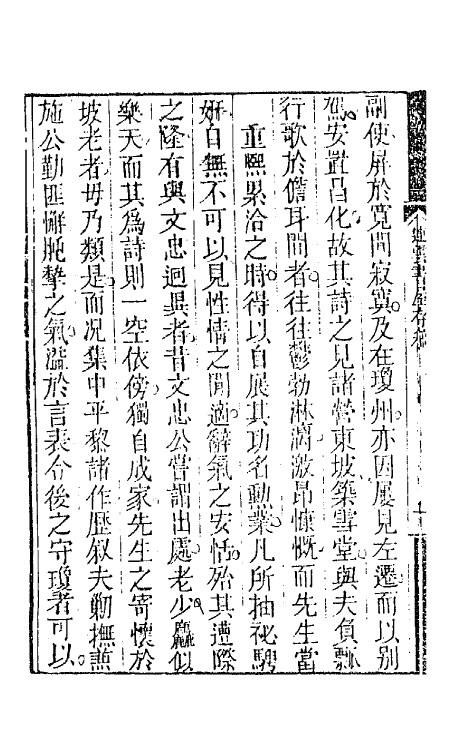 副使屏於寛閒寂寞及在瓊州亦因屢見左遷而以別
駕安置昌化故其詩之見諸營東坡築雪堂與夫負瓢
行歌於儋耳間者往往鬱勃淋漓激昂慷慨而先生當
重熙累洽之時得以自展其功名勲業凡所抽祕騁
妍自無不可以見性情之閒適辭氣之安恬殆其遭際
之隆有與文忠迥異者昔文忠公嘗謂出處老少麤似
樂天而其爲詩則一空依傍獨自成家先生之寄懷於
坡老者毋乃類是而况集中平黎諸作歷叙夫勦撫蓋
施公勤匪懈肫摯之氣溢於言表令後之守瓊者可以